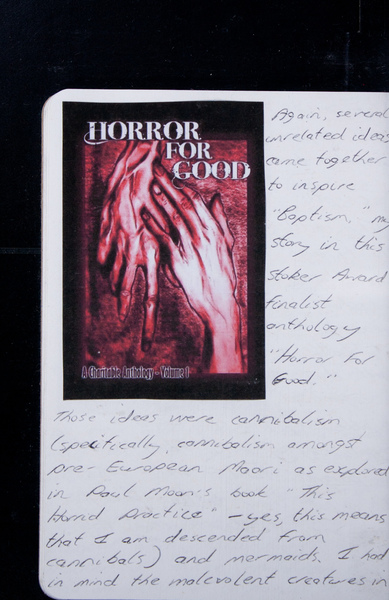 HORROR
FOR
GOOD
A Charitable Anthology - Volume 1
Again, several
unrelated ideas
came together
to inspire
"Baptism," my
story in this
Stoker Award
finalist
anthology
"Horror For
Good."
Those ideas were cannibalism
(specifically, cannibalism amongst
pre-European Maori as explored
in Paul Moon's book "This
Horrid Practice" - yes, this means
that I am descended from
cannibals) and mermaids. I had
in mind the malevolent creatures in